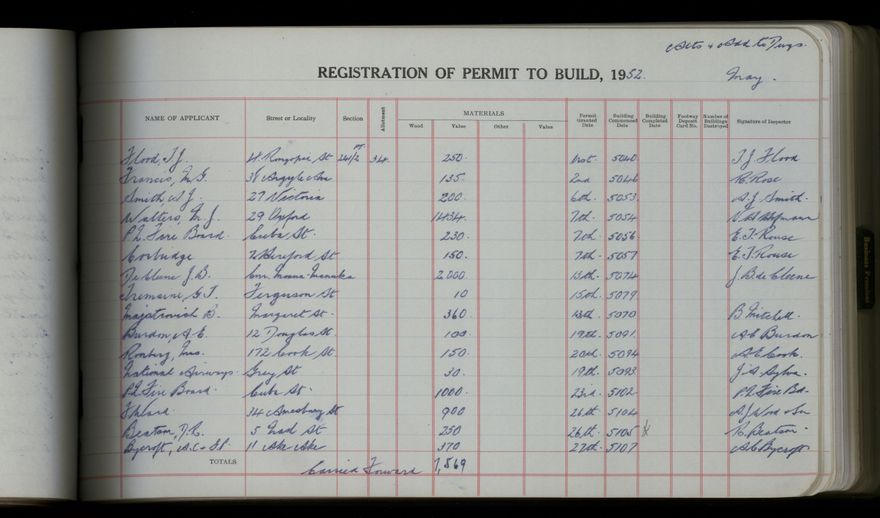 Alts & Add to Dwgs.
REGISTRATION OF PERMIT TO BUILD, 1952. May.
NAME OF APPLICANT Street or Locality Section Allotment MATERIALS Wood Value Other Value Permit Granted Date Building Commenced Date Building Completed Date Footway Deposit Card No. Number of Buildings Destroyed Signature of Inspector
Flood, T J. 48 Rongopai St 341. 250. 1st. 5040 T J Flood
Francis, M G. 38 Argyle Ave 135. 2nd 5046 R. Rose
Smith, W J. 27 Victoria 200. 6th. 5053 A J Smith.
Walters, M. J. 29 Oxford 1434. 7th. 5054
P.N. Fire Board. Cuba St. 230. 7th. 5056 E. J. Rouse
Corbridge Hereford St 150. 7th. 5057 E. J. Rouse
De Cleene J. B. Cnr. 2000. 13th. 5074 J B de Cleene
Tremaine, G. T. Ferguson St 10 15th. 5079
B. Margaret St. 360. 13th. 5070 B Mitchell.
Burdon, A. E. 12 Douglas St. 100. 19th. 5091. A E Burdon
Mrs. 172 Cook St. 150. 20th. 5094 A E Cook.
National Airways. Grey St 30. 19th. 5093
P.N. Fire Board. Cuba St. 1000. 23rd. 5102 P.N Fire Bd.
34 Amesbury St 900 26th. 5104 A J Wood & Son
Beaton, D. R. 5 St 250 26th. 5105 R. Beaton
Bycroft, A. C. & 11 Ake Ake 370 27th. 5107 A C Bycroft
TOTALS Carried Forward 7,869